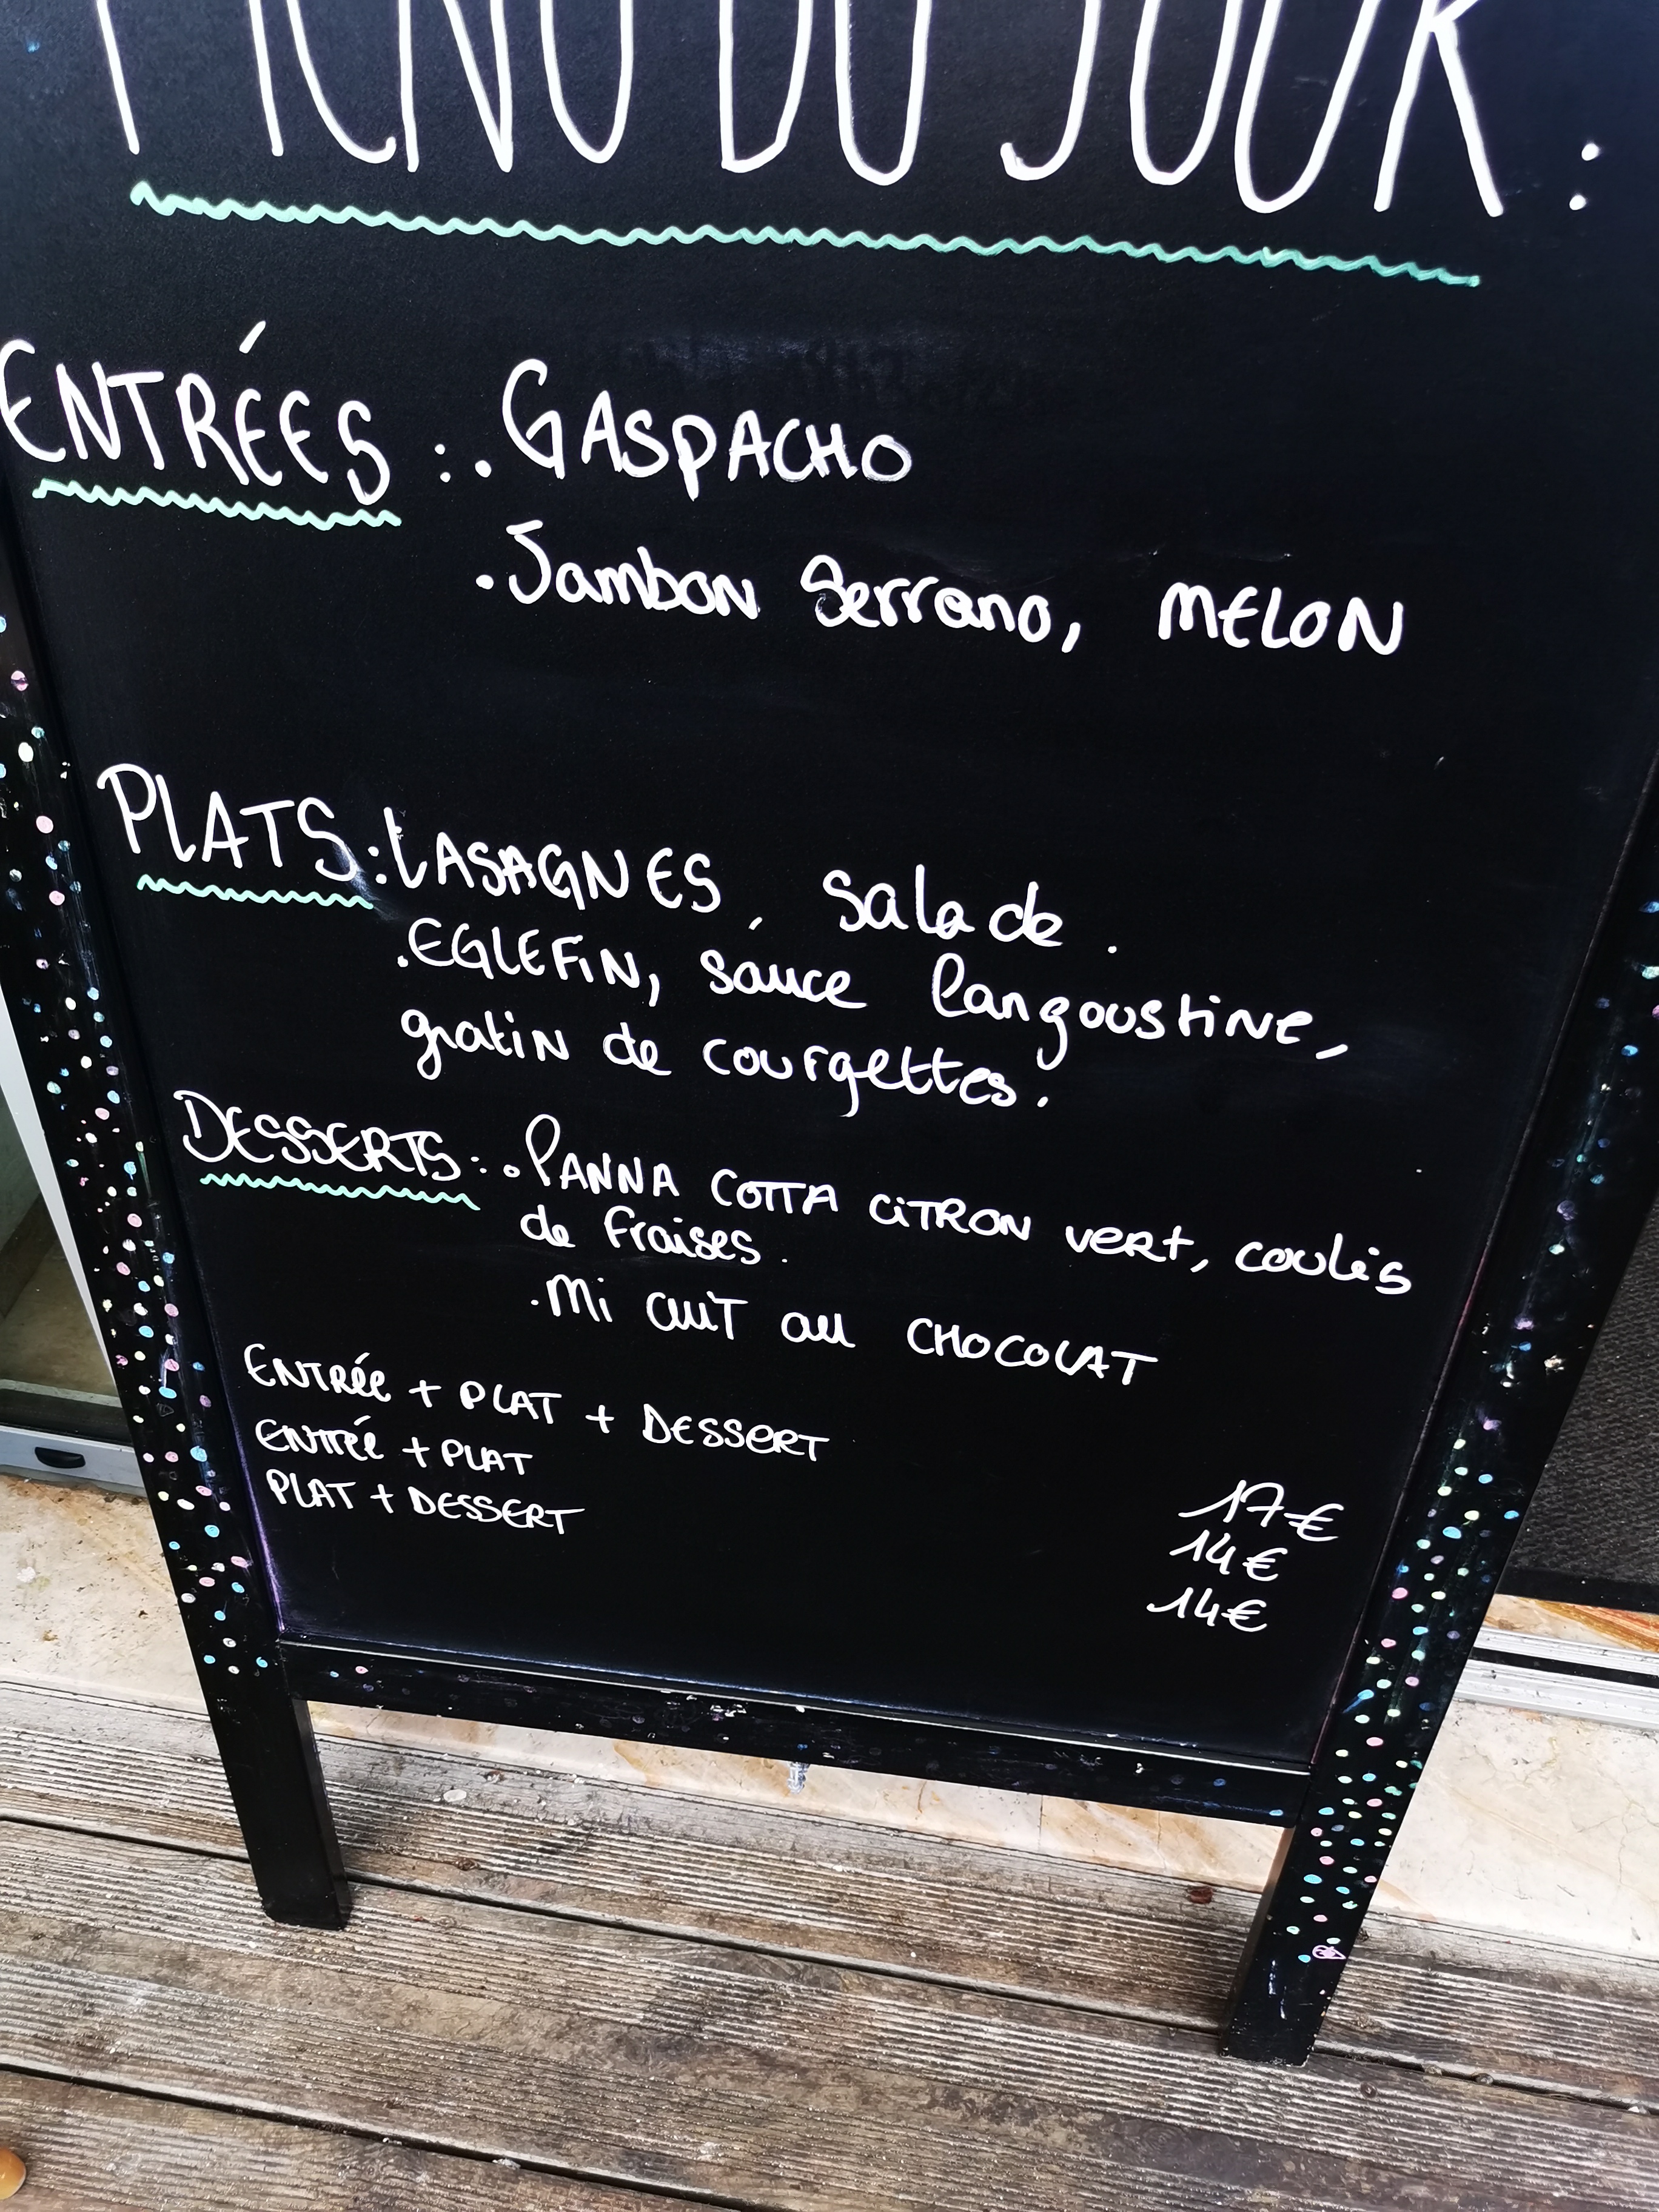 MENU DU JOUR :
ENTRÉES : . GASPACHO
. Jambon Serrano, MELON
PLATS : LASAGNES, salade.
. EGLEFIN, sauce langoustine,
gratin de courgettes.
DESSERTS : . PANNA COTTA CITRON vert, coulis
de fraises.
. Mi cuit au CHOCOLAT
ENTRÉE + PLAT + DESSERT 17€
ENTRÉE + PLAT 14€
PLAT + DESSERT 14€